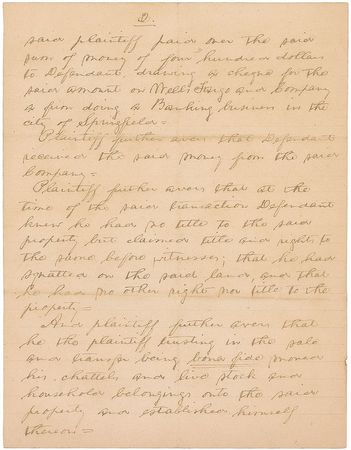 2.
said plaintiff paid over the said
sum of money of four hundred dollars
to Defendant, drawing a cheque for the
said amount on Wells Fargo and Company
a firm doing a Banking business in the
city of Springfield =
Plaintiff further avers that Defendant
received the said money from the said
Company =
Plaintiff further avers that at the
time of the said transaction Defendant
knew he had no title to the said
property but claimed title and rights to
the same before witnesses; that he had
squatted on the said land, and that
he had no other right nor title to the
property =
And plaintiff further avers that
he the plaintiff trusting in the sale
and transfer being bona fide moved
his chattels and live stock and
household belongings onto the said
property and established himself
thereon =